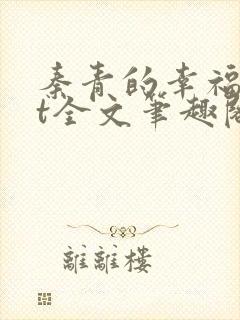 秦青的幸福
t全文笔趣阁
離離樓